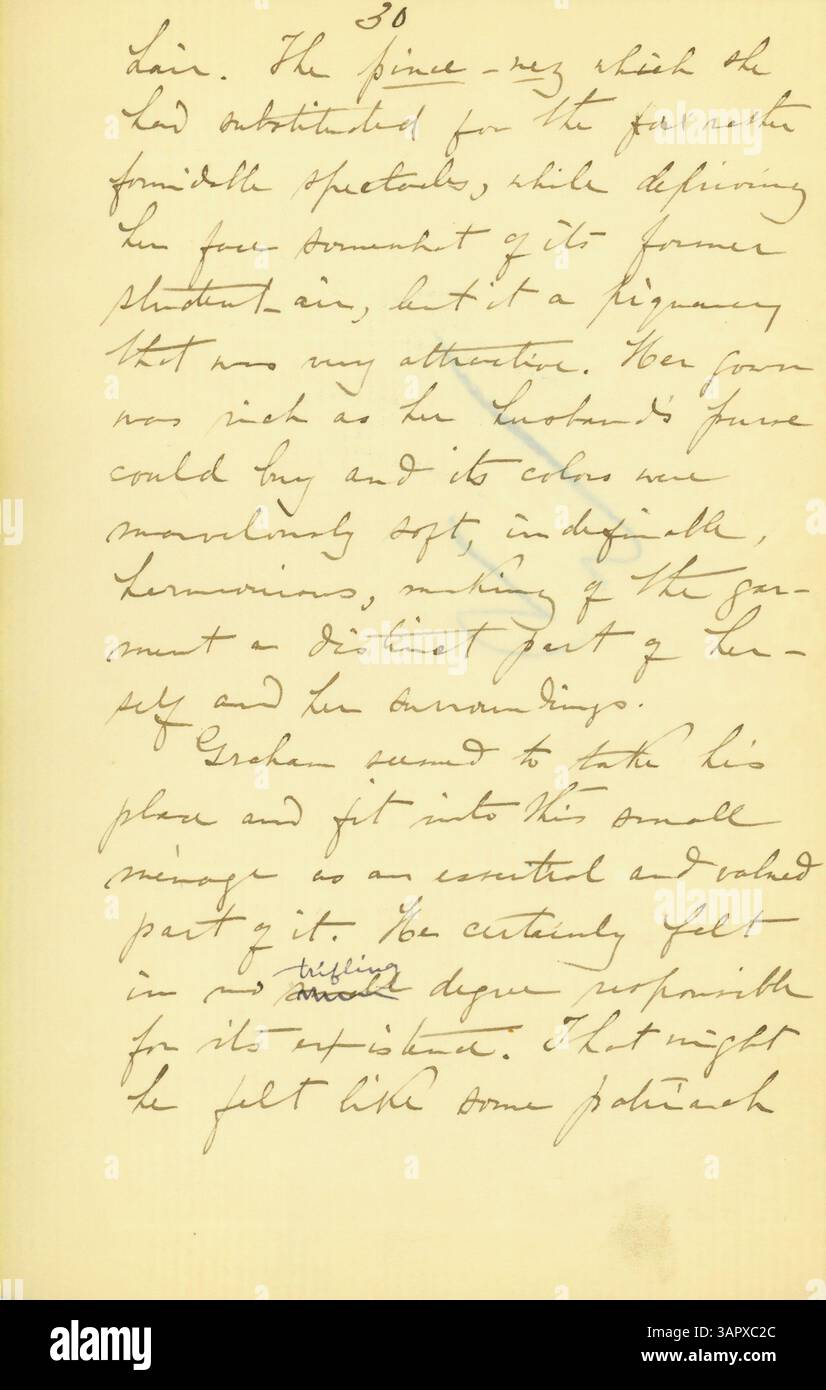 30
hair. The pince-nez which she
had substituted for the rather
formidable spectacles, while depriving
her face somewhat of its former
student-air, lent it a piquancy
that was very attractive. Her gown
was rich as her husband's purse
could buy and its colors were
marvelously soft, indefinable,
harmonious, making of the gar-
ment a distinct part of her-
self and her surroundings.
Graham seemed to take his
place and fit into this small
ménage as an essential and valued
part of it. He certainly felt
trifling
in no small degree responsible
for its existence. That night
he felt like some patriarch
alamy
Image ID: 3APXC2C
www.alamy.com